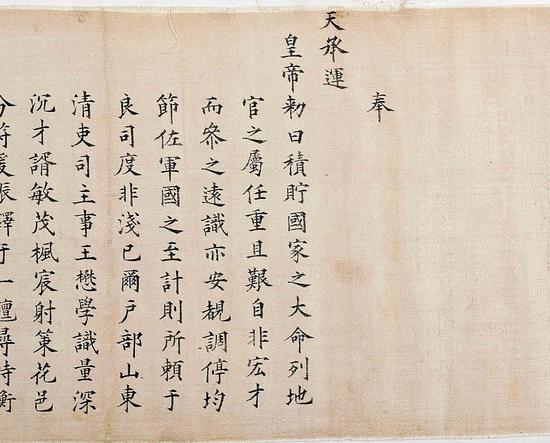 奉
天承運
皇帝勅曰積貯國家之大命列地
官之屬任重且艱自非宏才
而叅之遠識亦安覩調停均
節佐軍國之至計則所頼于
良司度非淺已爾戶部山東
清吏司主事王懋學識量深
沉才諝敏茂楓宸射策花邑
分符援張釋于一壇尋持衡